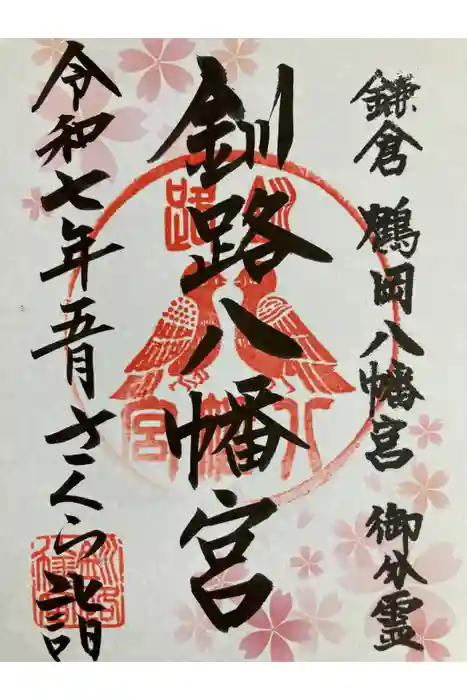 鎌倉 鶴岡八幡宮 御分霊
釧路八幡宮
令和七年五月 さくら詣
釧路
八幡宮